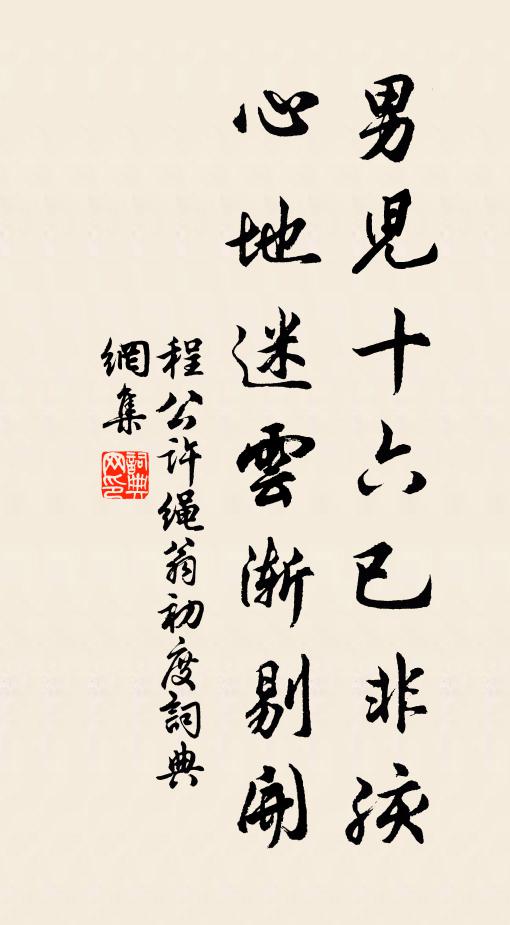 男兒十六已非孩
心地迷雲漸剔開
程公許繩翁初度詞典
網集
詞典網印